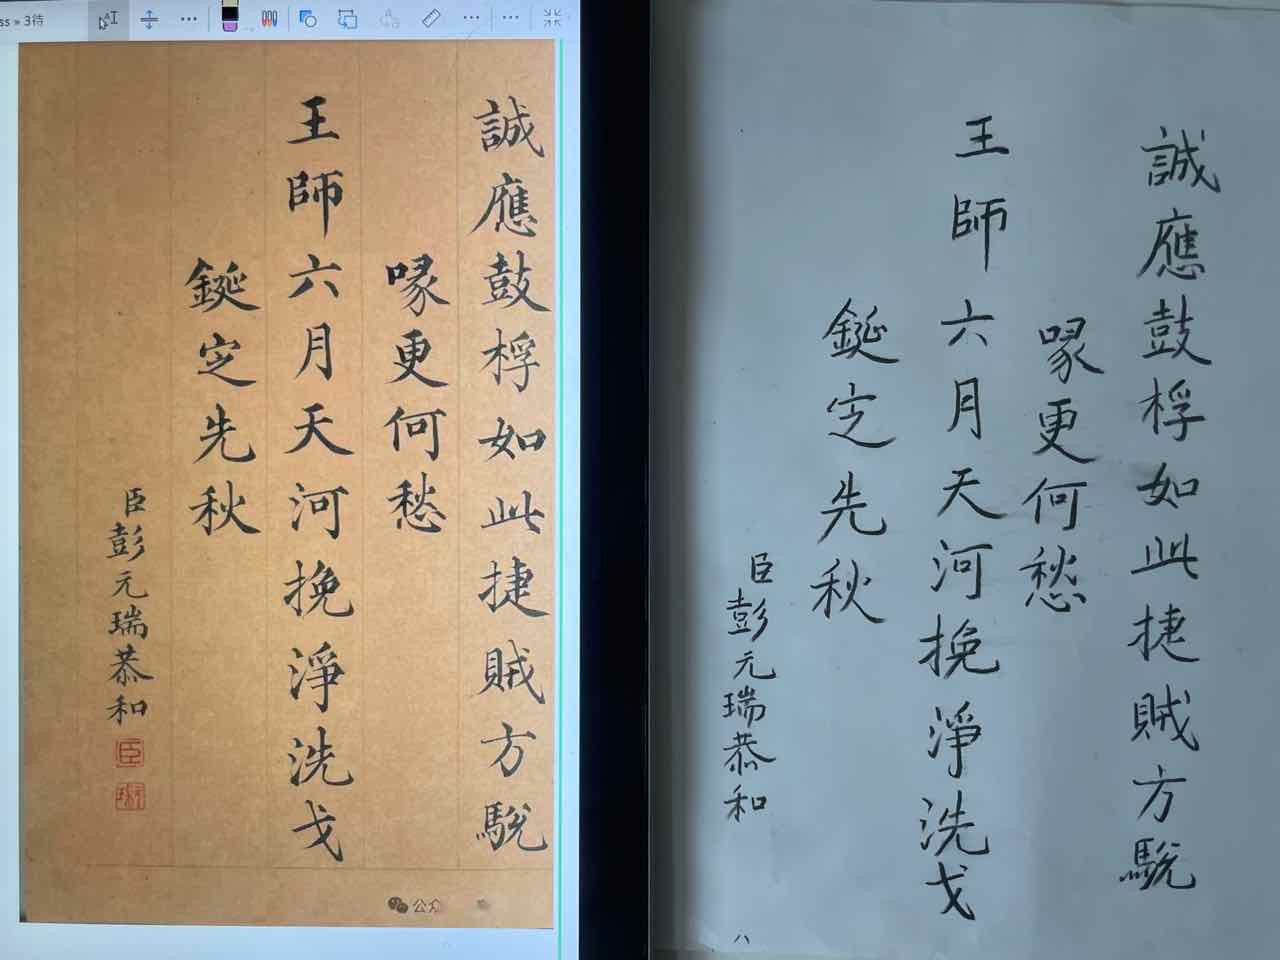 ss » 3待
誠應鼓桴如此捷賊方駾
喙更何愁
王師六月天河挽淨洗戈
鋋定先秋
臣彭元瑞恭和
臣
公众
誠應鼓桴如此捷賊方駾
喙更何愁
王師六月天河挽淨洗戈
鋋定先秋
臣彭元瑞恭和
八